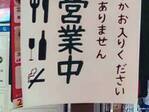 かお入りください
ありません
営業中